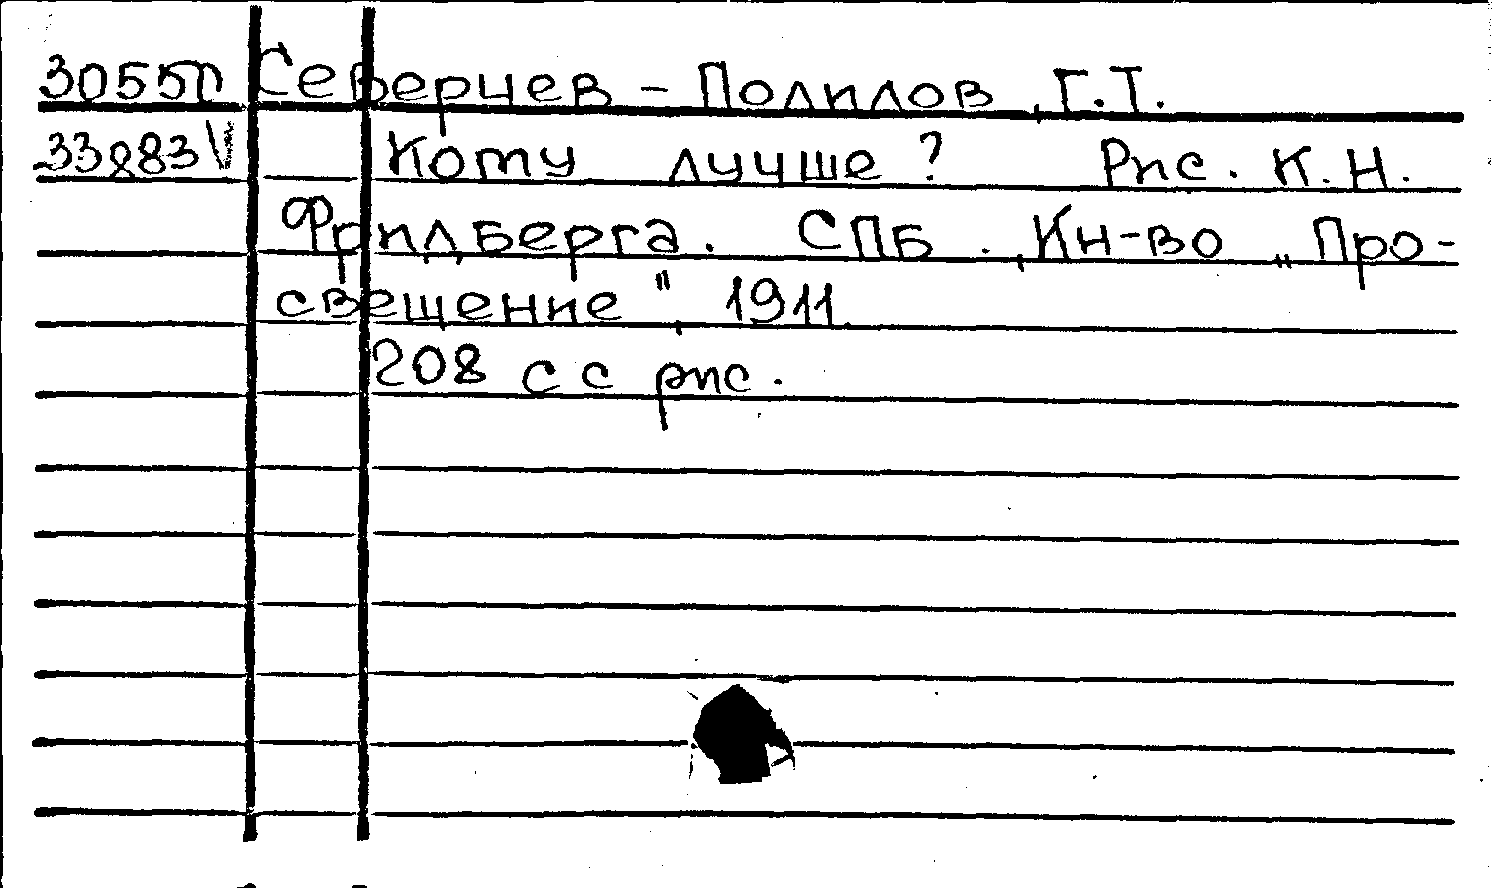 3055п Северцев - Полилов, Г.Т.
33883 Кому лучше? Рис. К.Н.
Фридберга. СПБ., Кн-во „Про-
свещение", 1911.
208 с с рис.